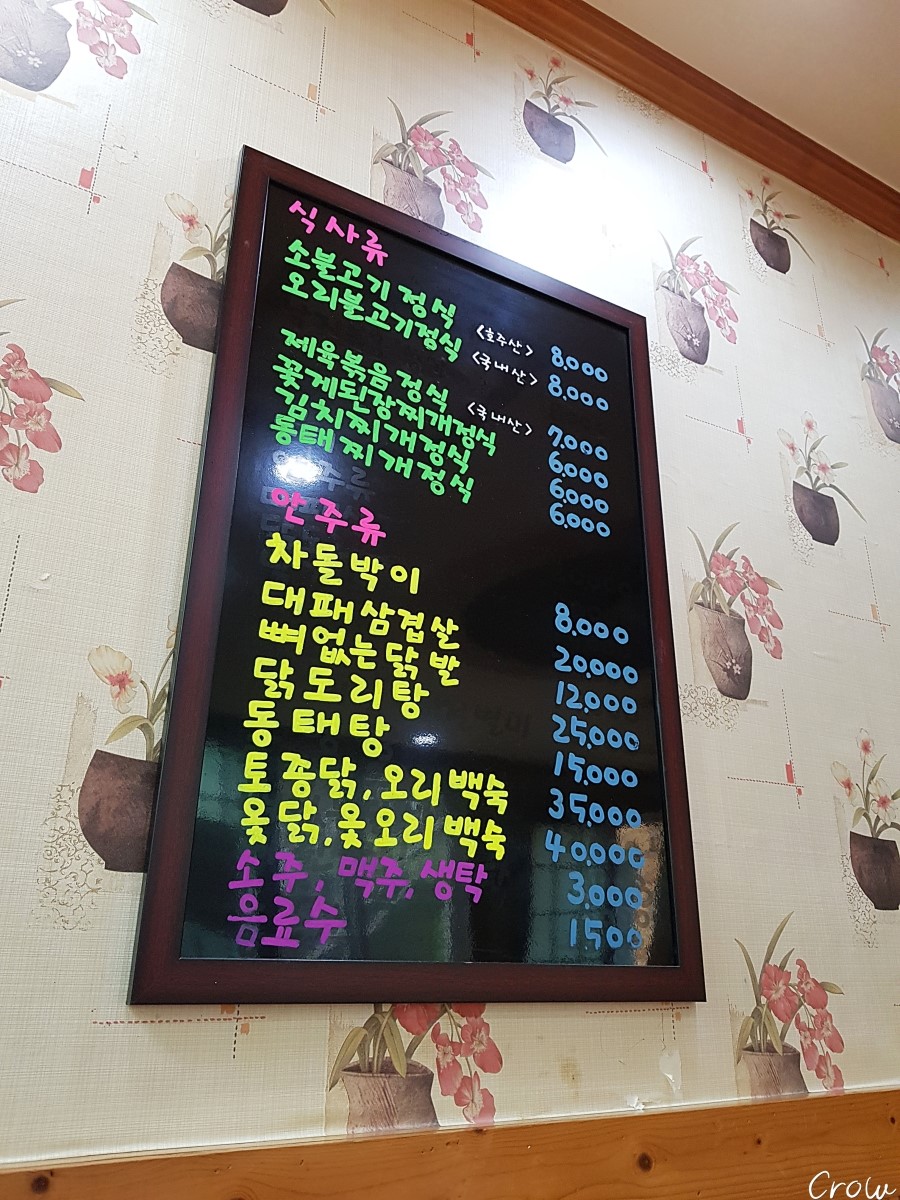 식사류
소불고기 정식 <호주산> 8,000
오리불고기정식 <국내산> 8,000
제육볶음정식 <국내산> 7,000
꽃게된장찌개정식 6,000
김치찌개정식 6,000
동태찌개정식 6,000
안주류
차돌박이 8,000
대패삼겹살 20,000
뼈없는닭발 12,000
닭도리탕 25,000
동태탕 15,000
토종닭, 오리백숙 35,000
옻닭, 옻오리백숙 40,000
소주, 맥주, 생탁 3,000
음료수 1,500
Crow